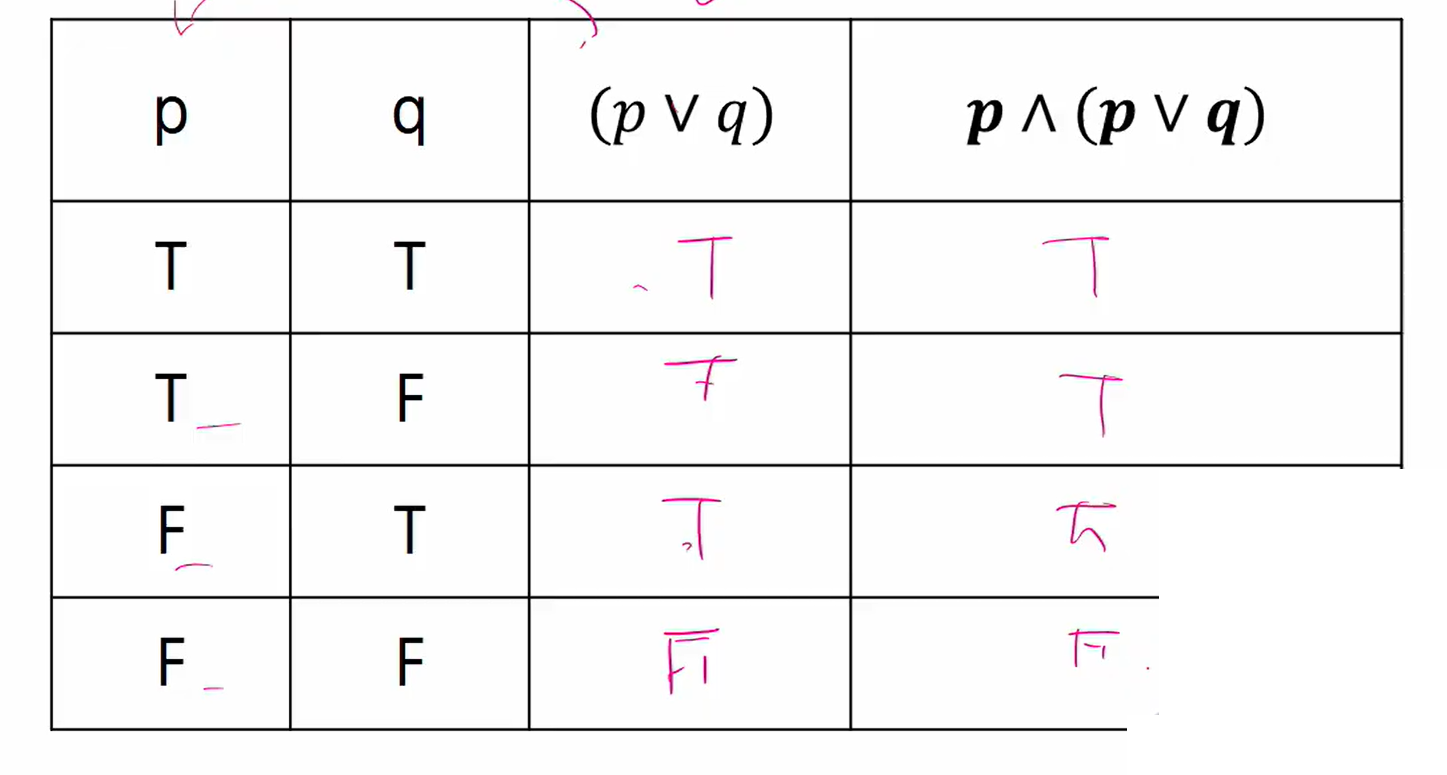 p q (p ∨ q) p ∧ (p ∨ q)
T T T T
T F T
F T T
F F F F